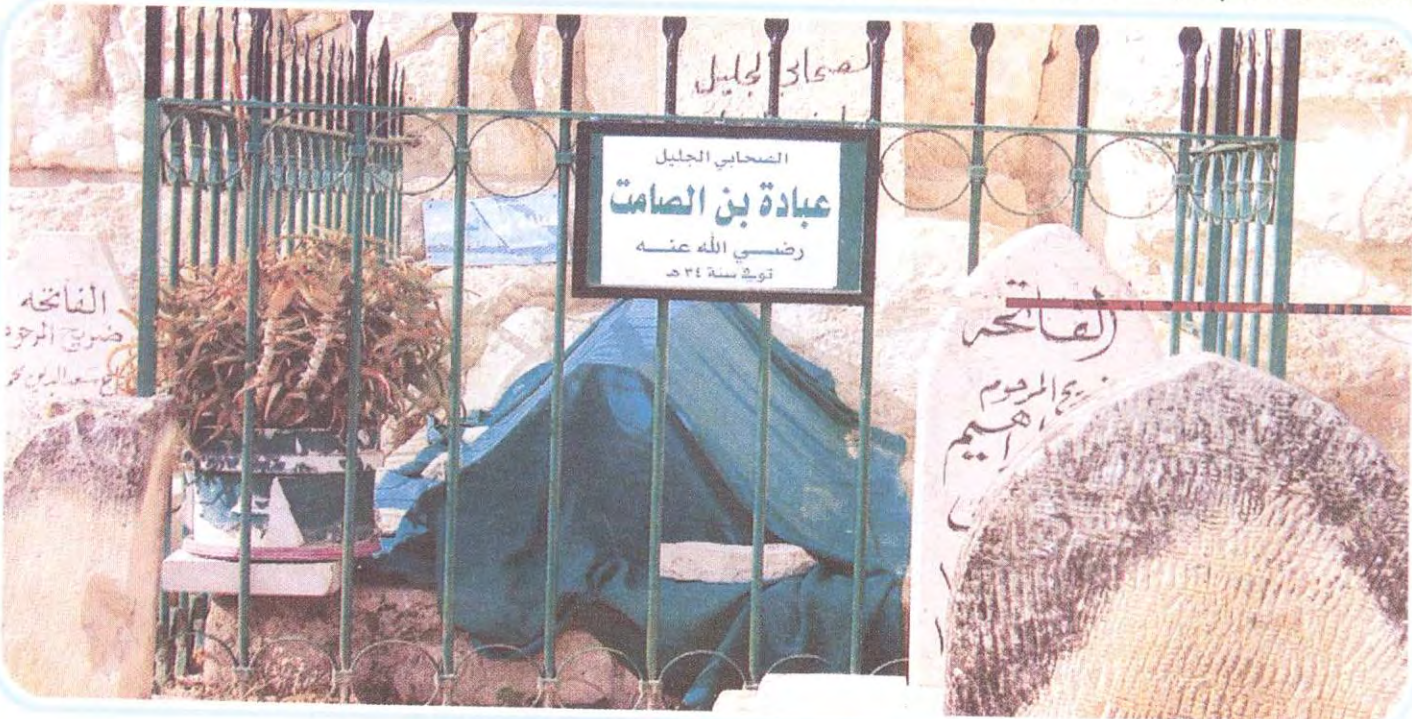 الصحابي الجليل
الصحابي الجليل
عبادة بن الصامت
رضي الله عنه
توفي سنة ٣٤ هـ
الفاتحه
ضريح المرحوم
سعد الدين
الفاتحه
ضريح المرحوم